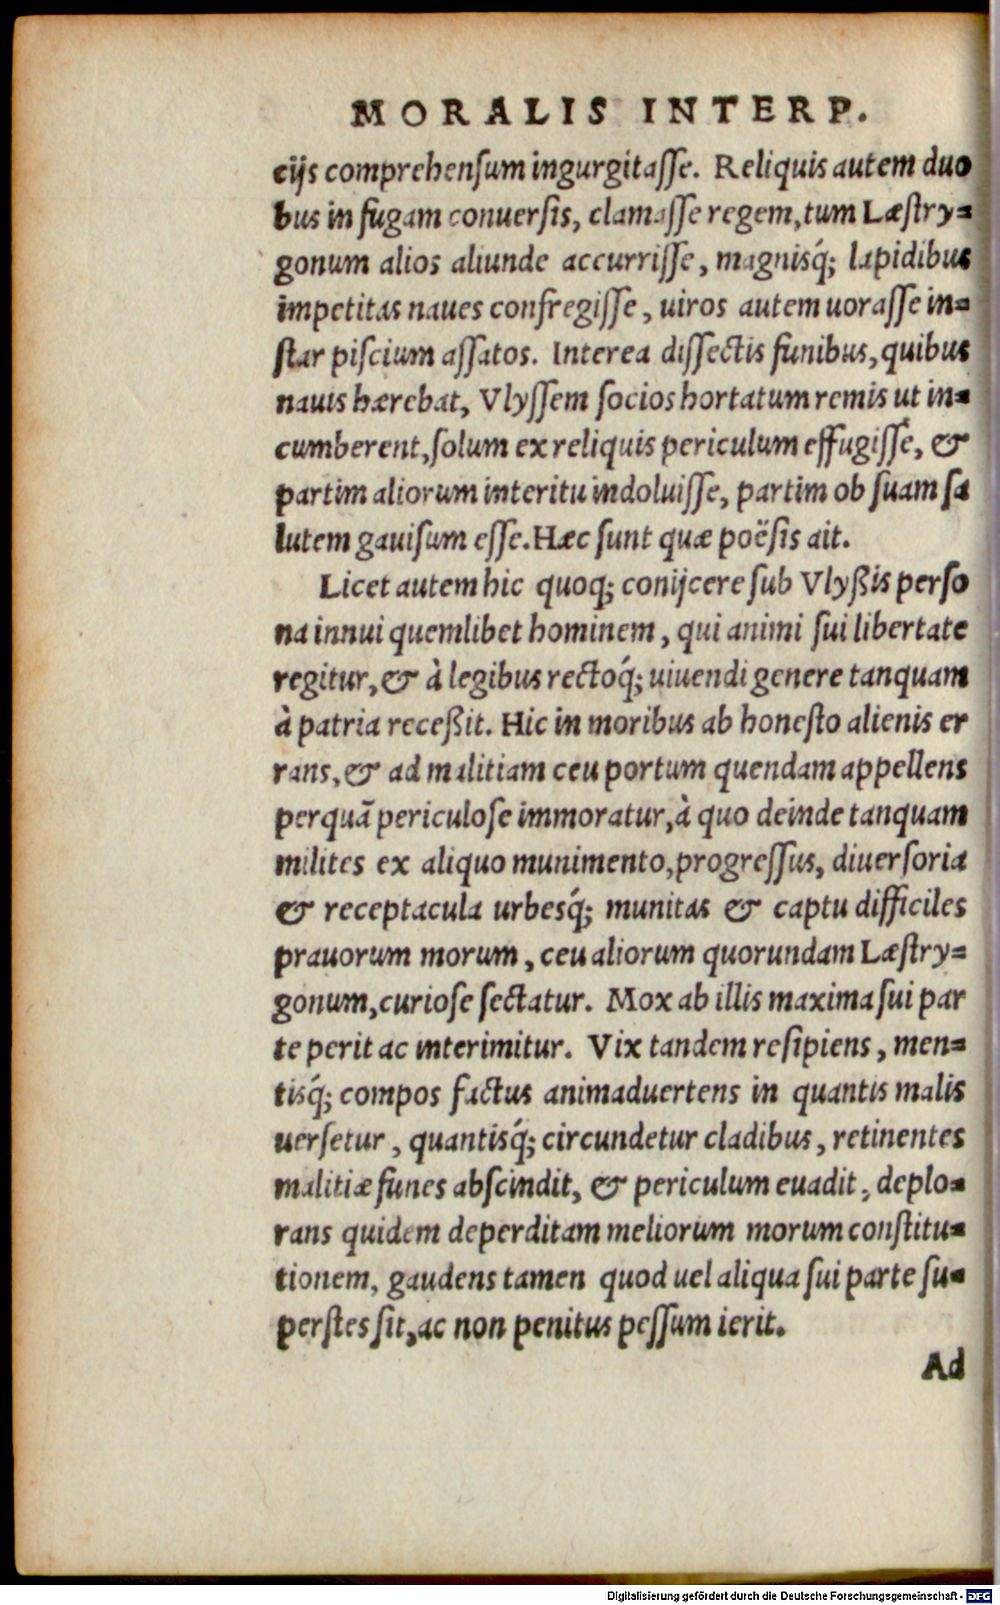 MORALIS INTERP.
cijs comprehenſum ingurgitaſſe. Reliquis autem duo
bus in fugam conuerſis, clamaſſe regem, tum Læſtry⸗
gonum alios aliunde accurriſſe, magnisq́; lapidibus
impetitas naues confregiſſe, uiros autem uoraſſe in⸗
ſtar piſcium aſſatos. Interea diſſectis funibus, quibus
nauis hærebat, Vlyſſem ſocios hortatum remis ut in⸗
cumberent, ſolum ex reliquis periculum effugiſſe, &
partim aliorum interitu indoluiſſe, partim ob ſuam ſa
lutem gauiſum eſſe. Hæc ſunt quæ poëſis ait.
Licet autem hic quoq; conijcere ſub Vlyßis perſo
na innui quemlibet hominem, qui animi ſui libertate
regitur, & à legibus rectoq́; uiuendi genere tanquam
à patria receßit. Hic in moribus ab honeſto alienis er
rans, & ad malitiam ceu portum quendam appellens
perquã periculoſe immoratur, à quo deinde tanquam
milites ex aliquo munimento, progreſſus, diuerſoria
& receptacula urbesq́; munitas & captu difficiles
prauorum morum, ceu aliorum quorundam Læſtry⸗
gonum, curioſe ſectatur. Mox ab illis maxima ſui par
te perit ac interimitur. Vix tandem reſipiens, men⸗
tisq́; compos factus animaduertens in quantis malis
uerſetur, quantisq́; circundetur cladibus, retinentes
malitiæ funes abſcindit, & periculum euadit, deplo⸗
rans quidem deperditam meliorum morum conſtitu⸗
tionem, gaudens tamen quod uel aliqua ſui parte ſu⸗
perſtes ſit, ac non penitus peſſum ierit.
Ad
Digitalisierung gefördert durch die Deutsche Forschungsgemeinschaft - DFG